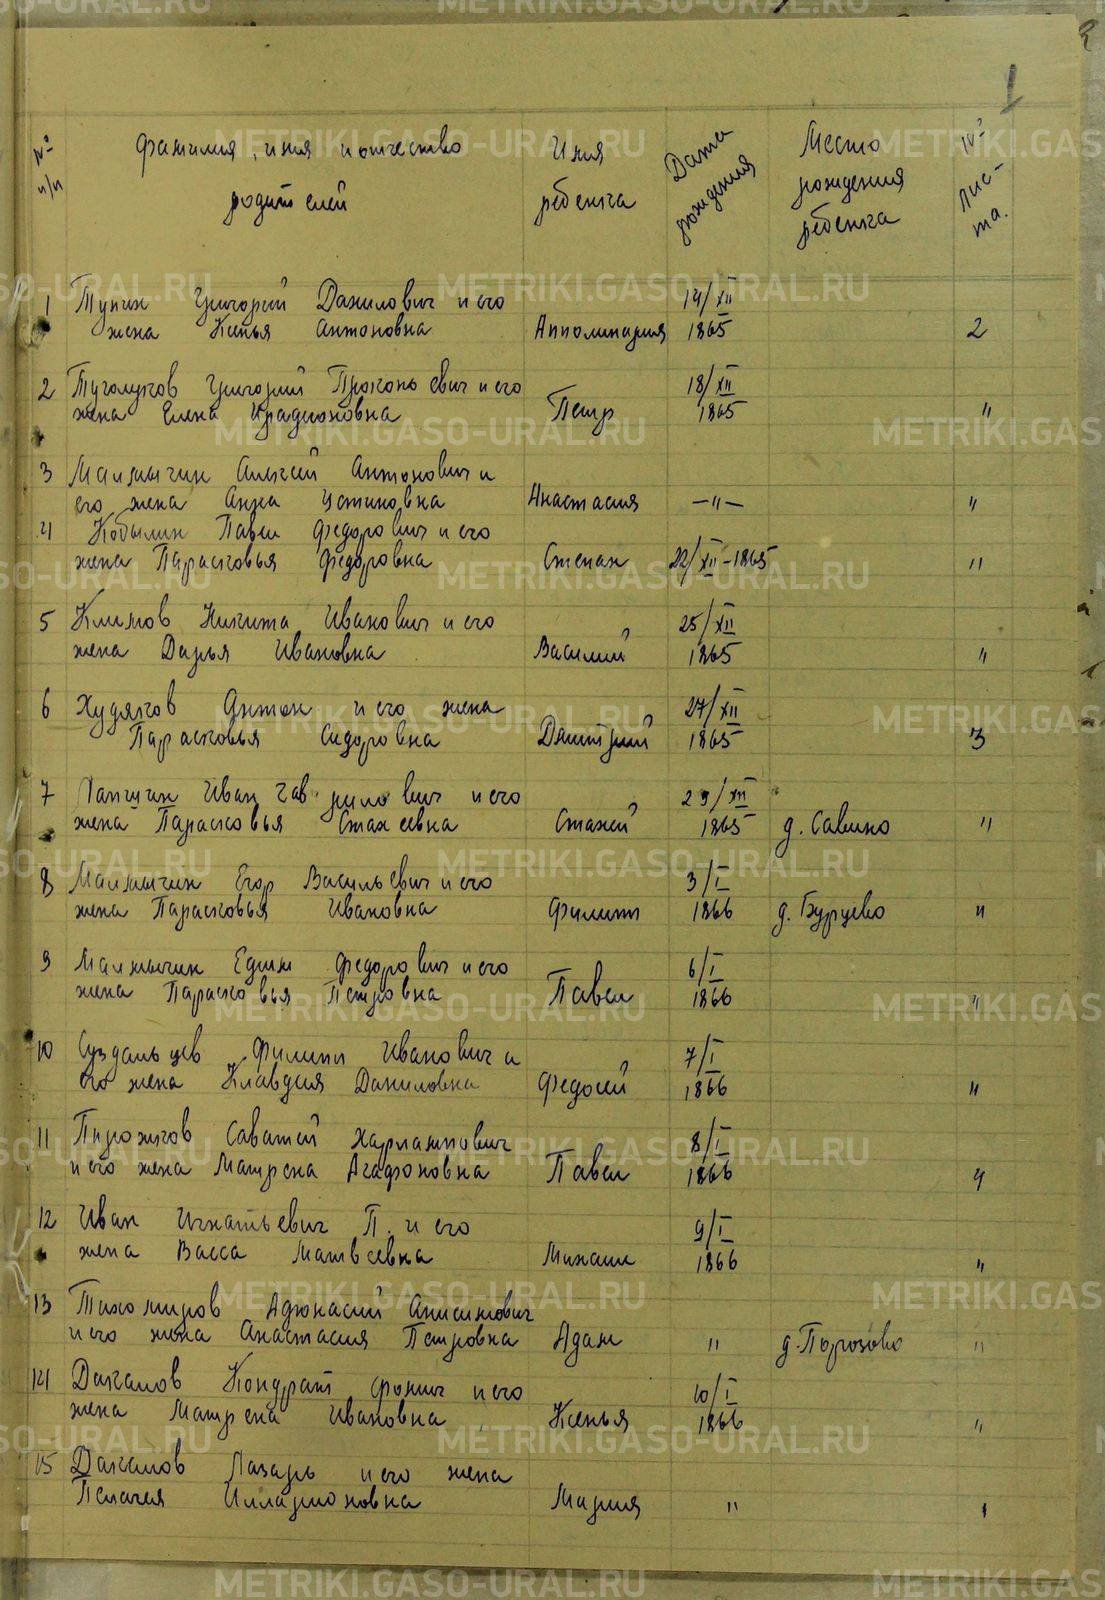 1
№ п/п
Фамилия, имя и отчество родителей
Имя ребенка
Дата рождения
Место рождения ребенка
№ листа.
1 Тунин Григорий Данилович и его 14/XII
жена Аксинья Антоновна Апполинария 1865 2
2 Туголуков Григорий Прокопьевич и его 18/XII
жена Елена Ирадионовна Петр 1865 "
3 Малмыгин Алексей Антонович и
его жена Анна Устиновна Анастасия —"— "
4 Кобылин Павел Федорович и его
жена Парасковья Федоровна Степан 22/XII-1865 "
5 Климов Никита Иванович и его 25/XII
жена Дарья Ивановна Василий 1865 "
6 Худяков Антон и его жена 27/XII
Парасковья Сидоровна Дмитрий 1865 3
7 Лапшин Иван Гаврилович и его 29/XII
жена Парасковья Стахеевна Стахей 1865 д. Савино "
8 Малмыгин Егор Васильевич и его 3/I
жена Парасковья Ивановна Филипп 1866 д. Бурцево "
9 Малмыгин Едим Федорович и его 6/I
жена Парасковья Петровна Павел 1866 "
10 Суздальцев Филипп Иванович и 7/I
его жена Клавдия Даниловна Федосий 1866 "
11 Пирожков Саватей Харлампович 8/I
и его жена Матрена Агафоновна Павел 1866 4
12 Иван Игнатьевич П. и его 9/I
жена Васса Матвеевна Михаил 1866 "
13 Тихомиров Афонасий Анисимович
и его жена Анастасия Петровна Адам " д. Порозово "
14 Дакалов Кондрат Фомич и его 10/I
жена Матрена Ивановна Ксенья 1866 "
15 Дакалов Лазарь и его жена
Пелагея Илларионовна Мария " "
METRIKI.GASO-URAL.RU